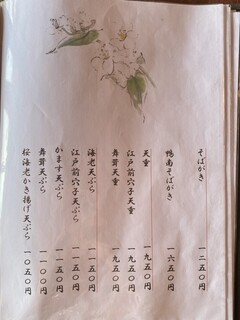 そばがき 一二五〇円
鴨南そばがき 一六五〇円
天重 一九五〇円
江戸前穴子天重 一九五〇円
舞茸天重 一九五〇円
海老天ぷら 一一五〇円
江戸前穴子天ぷら 一一五〇円
かます天ぷら 一一五〇円
舞茸天ぷら 一一〇〇円
桜海老かき揚げ天ぷら 一〇五〇円